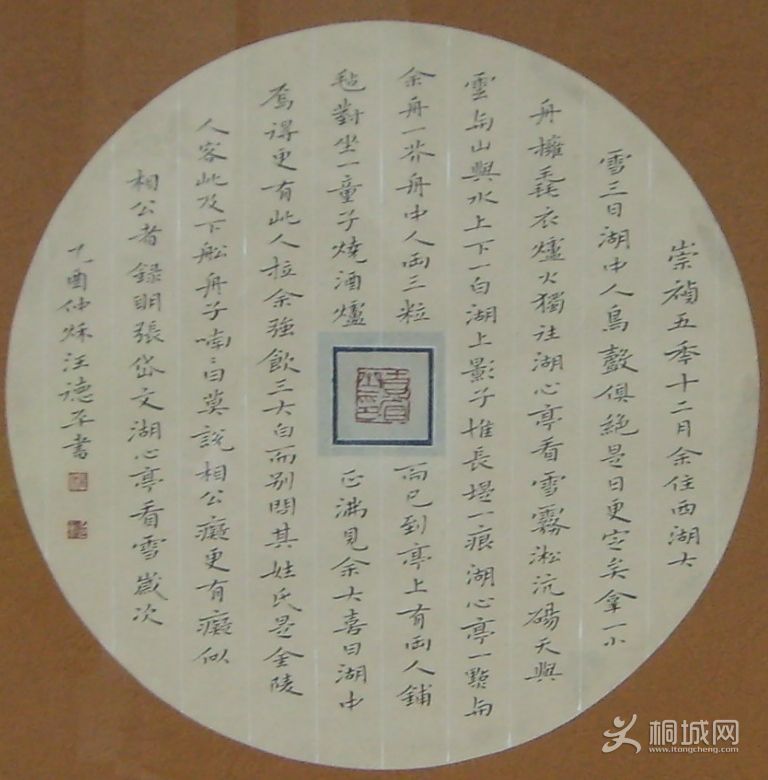 崇禎五季十二月余住西湖大
雪三日湖中人鳥聲俱絕是日更定矣拿一小
舟擁毳衣爐火獨往湖心亭看雪霧淞沆碭天與
雲与山與水上下一白湖上影子惟長堤一痕湖心亭一點与
余舟一芥舟中人兩三粒而已到亭上有兩人鋪
毡對坐一童子燒酒爐正沸見余大喜曰湖中
焉得更有此人拉余強飲三大白而別問其姓氏是金陵
人客此及下船舟子喃〻曰莫說相公癡更有癡似
相公者錄明張岱文湖心亭看雪歲次
乙酉仲秋汪德平書
桐城网
www.itongcheng.com